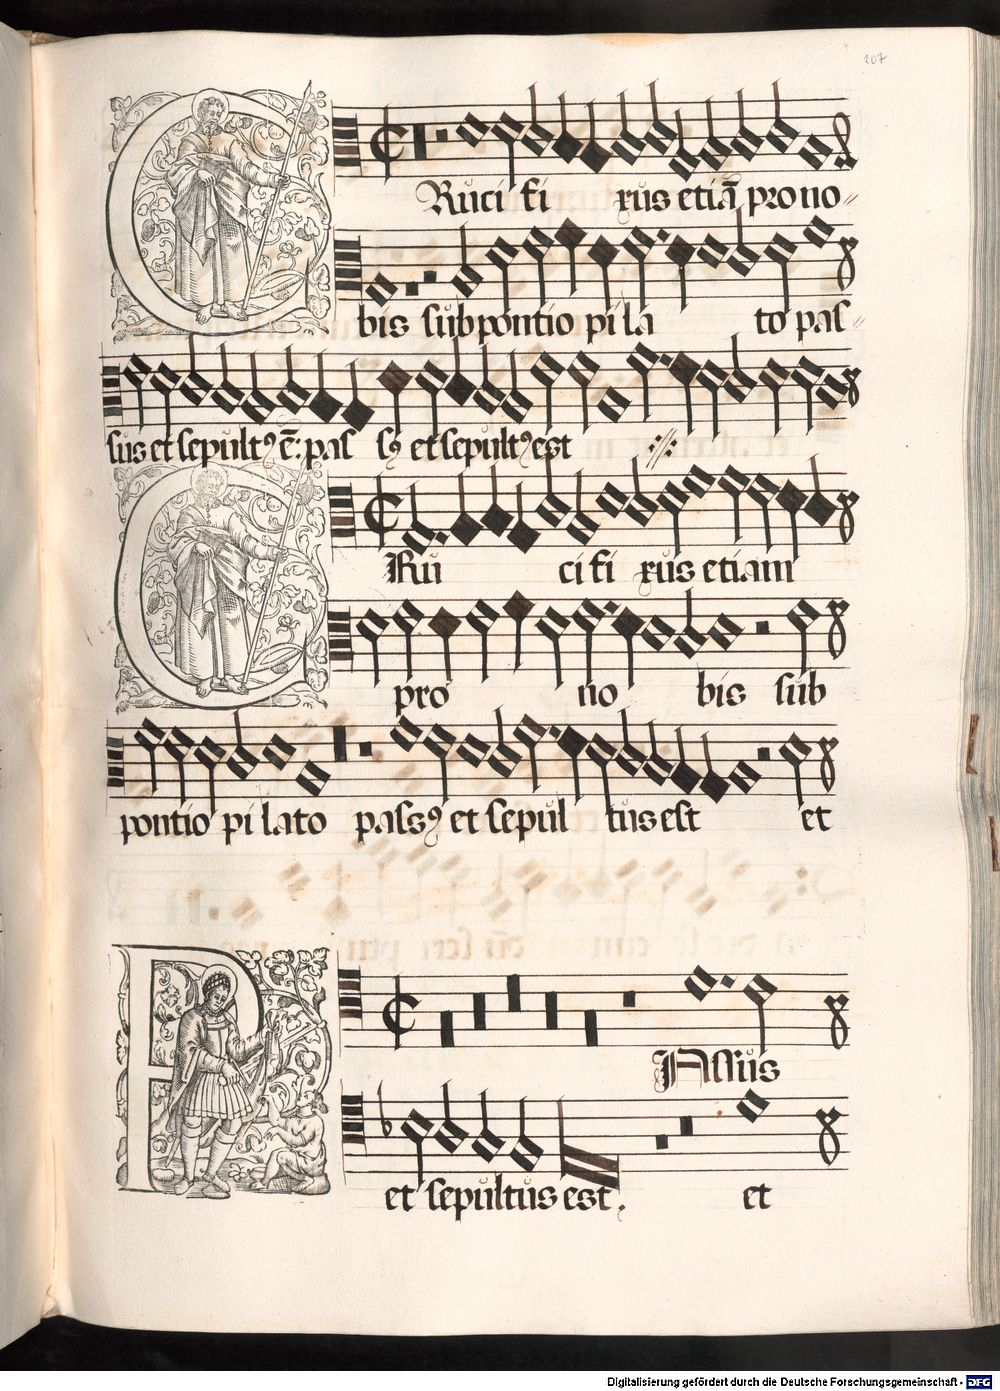 207
CRuci fi xus etiã pro no
bis sub pontio pi la to pas
sus et sepultꝰ ē: pas sꝰ et sepultꝰ est
CRu ci fi xus etiam
pro no bis sub
pontio pi lato passꝰ et sepul tus est et
PAssus
et sepultus est. et
Digitalisierung gefördert durch die Deutsche Forschungsgemeinschaft - DFG